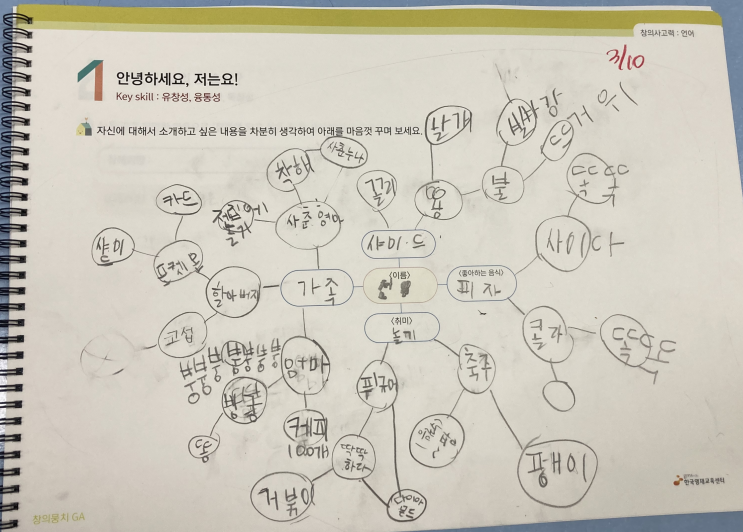 창의사고력 : 언어
3/10
1
안녕하세요, 저는요!
Key skill : 유창성, 융통성
자신에 대해서 소개하고 싶은 내용을 차분히 생각하여 아래를 마음껏 꾸며 보세요.
날개
빨강
뜨거워
착해
사촌누나
꼬리
용
불
똑똑
카드
사촌형아
샤미드
사이다
샬미
포켓몬
할아버지
가족
<이름>
<좋아하는 음식>
피자
고섭
<취미>
놀기
콜라
엄마
피규어
축구
똥
커피
100개
딱딱
하다
팽이
거북이
다이아
몬드
창의뭉치 GA
한국영재교육센터